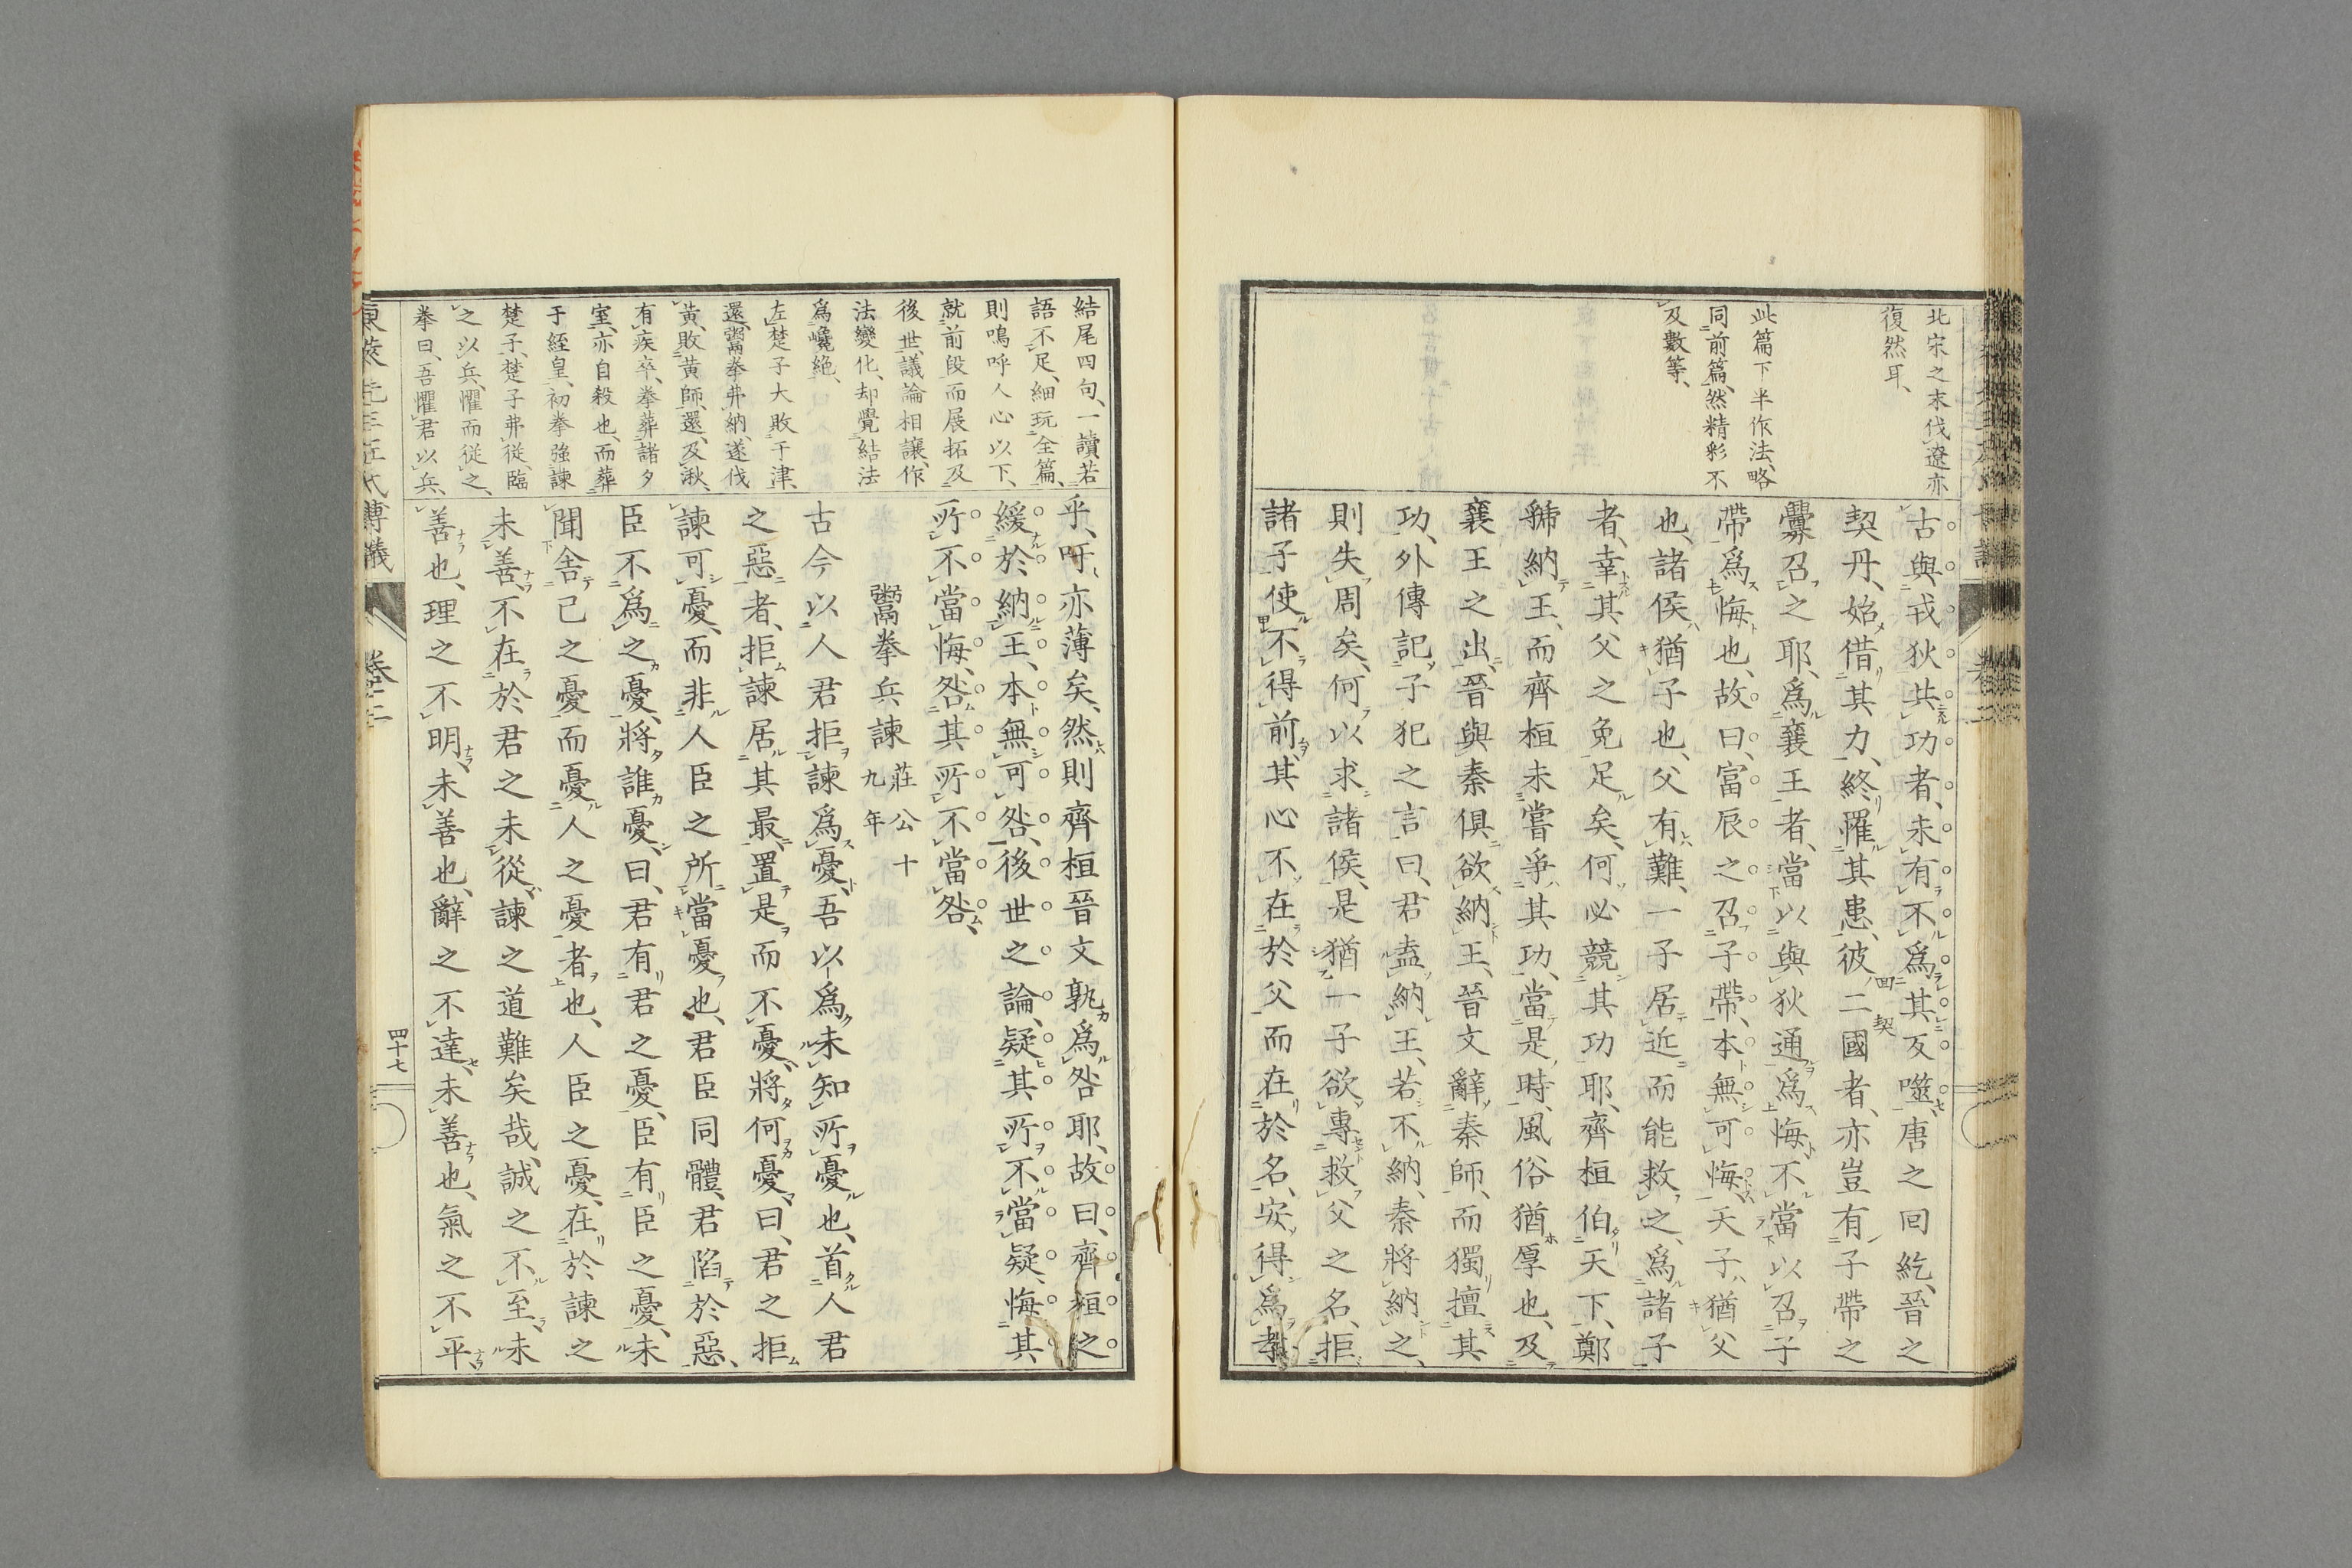 北宋之末伐遼亦
復然耳、
此篇下半作法、略
同前篇、然精彩不
及數等、
古與戎狄共功者、未有不爲其反噬、唐之回紇、晉之
契丹、始借其力、終罹其患、彼二國者、亦豈有子帶之
釁召之耶、爲襄王者、當以與狄通爲悔、不當以召子
帶爲悔也、故曰、富辰之召子帶、本無可悔、天子猶父
也、諸侯猶子也、父有難、一子居近而能救之、爲諸子
者、幸其父之免足矣、何必競其功耶、齊桓伯天下、鄭
虢納王、而齊桓未嘗爭其功、當是時、風俗猶厚也、及
襄王之出、晉與秦俱欲納王、晉文辭秦師、而獨擅其
功、外傳記子犯之言曰、君盍納王、若不納、秦將納之、
則失周矣、何以求諸侯、是猶一子欲專救父之名、拒
諸子使不得前、其心不在於父而在於名、安得爲孝
結尾四句、一讀若
語不足、細玩全篇、
則鳴呼人心以下、
就前段而展拓及
後世、議論相讓、作
法變化、却覺結法
爲巉絶、
左、楚子大敗于津、
還、鬻拳弗納、遂伐
黃、敗黃師、還、及湫、
有疾卒、拳葬諸夕
室、亦自殺也、而葬
于絰皇、初拳強諫
楚子、楚子弗從、臨
之以兵、懼而從之、
拳曰、吾懼君以兵、
乎、吁、亦薄矣、然則齊桓晉文孰爲咎耶、故曰、齊桓之
緩於納王、本無可咎、後世之論、疑其所不當疑、悔其
所不當悔、咎其所不當咎、
鬻拳兵諫 莊公十九年
古今以人君拒諫爲憂、吾以爲未知所憂也、首人君
之惡者、拒諫居其最、置是而不憂、將何憂、曰、君之拒
諫可憂、而非人臣之所當憂也、君臣同體、君陷於惡、
臣不爲之憂、將誰憂、曰、君有君之憂、臣有臣之憂、未
聞舍己之憂而憂人之憂者也、人臣之憂、在於諫之
未善、不在於君之未從、諫之道難矣哉、誠之不至、未
善也、理之不明、未善也、辭之不達、未善也、氣之不平、
東萊先生左氏博議
卷二
四十七